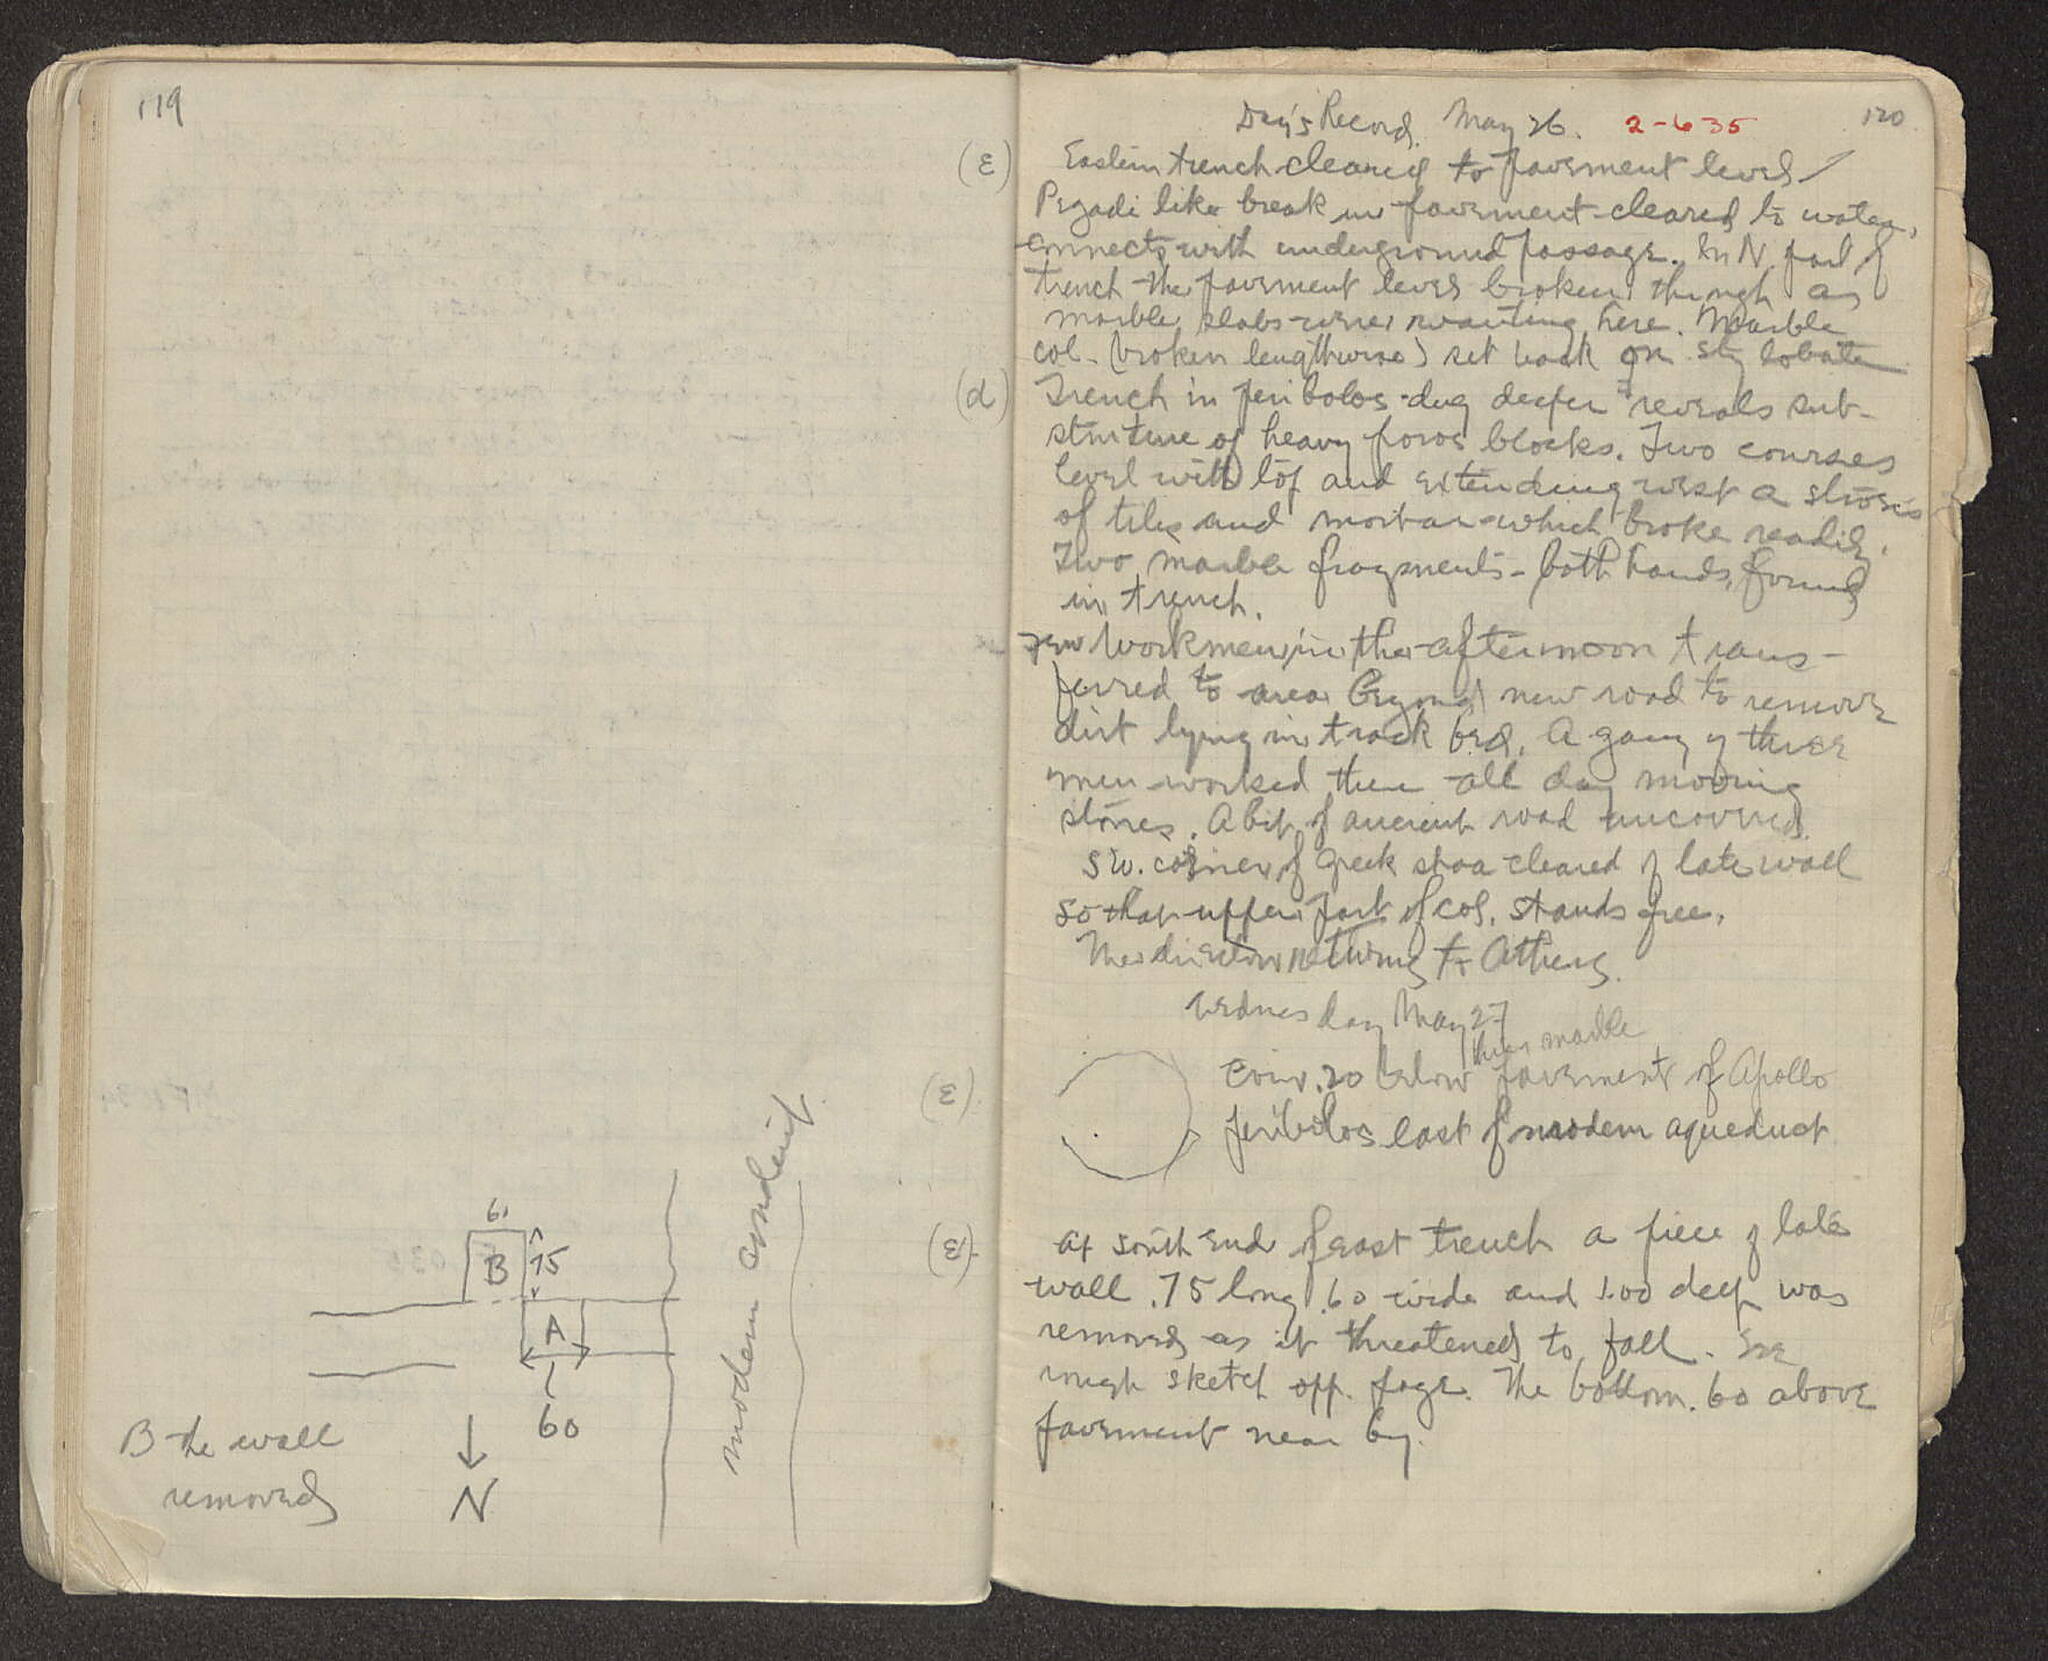 119
61
B
75
A
60
N
B the wall
removed
modern conduit
120
Day's Record. May 26. 2-635
(ε) Eastern trench cleared to pavement level
Pegadi like break in pavement cleared to water,
connects with underground passage. In N. part of
trench the pavement level broken through as
marble slabs were wanting here. Marble
col. (broken lengthwise) set back on stylobate
(d) Trench in peribolos dug deeper reveals sub-
structure of heavy poros blocks. Two courses
level with top and extending west a
of tiles and mortar which broke readily.
Two marble fragments - both hands, found
in trench.
Few workmen in the afternoon trans-
ferred to area beyond new road to remove
dirt lying in track bed. A gang of three
men worked there all day moving
stones. A bit of ancient road uncovered.
S.W. corner of Greek stoa cleared of late wall
so that upper part of col. stands free.
The director returns to Athens.
Wednesday May 27
(ε) Coin .20 below thin marble pavement of Apollo
peribolos east of modern aqueduct
(ε) At south end of east trench a piece of late
wall .75 long .60 wide and 1.00 deep was
removed as it threatened to fall. See
rough sketch opp. page. The bottom .60 above
pavement near by.